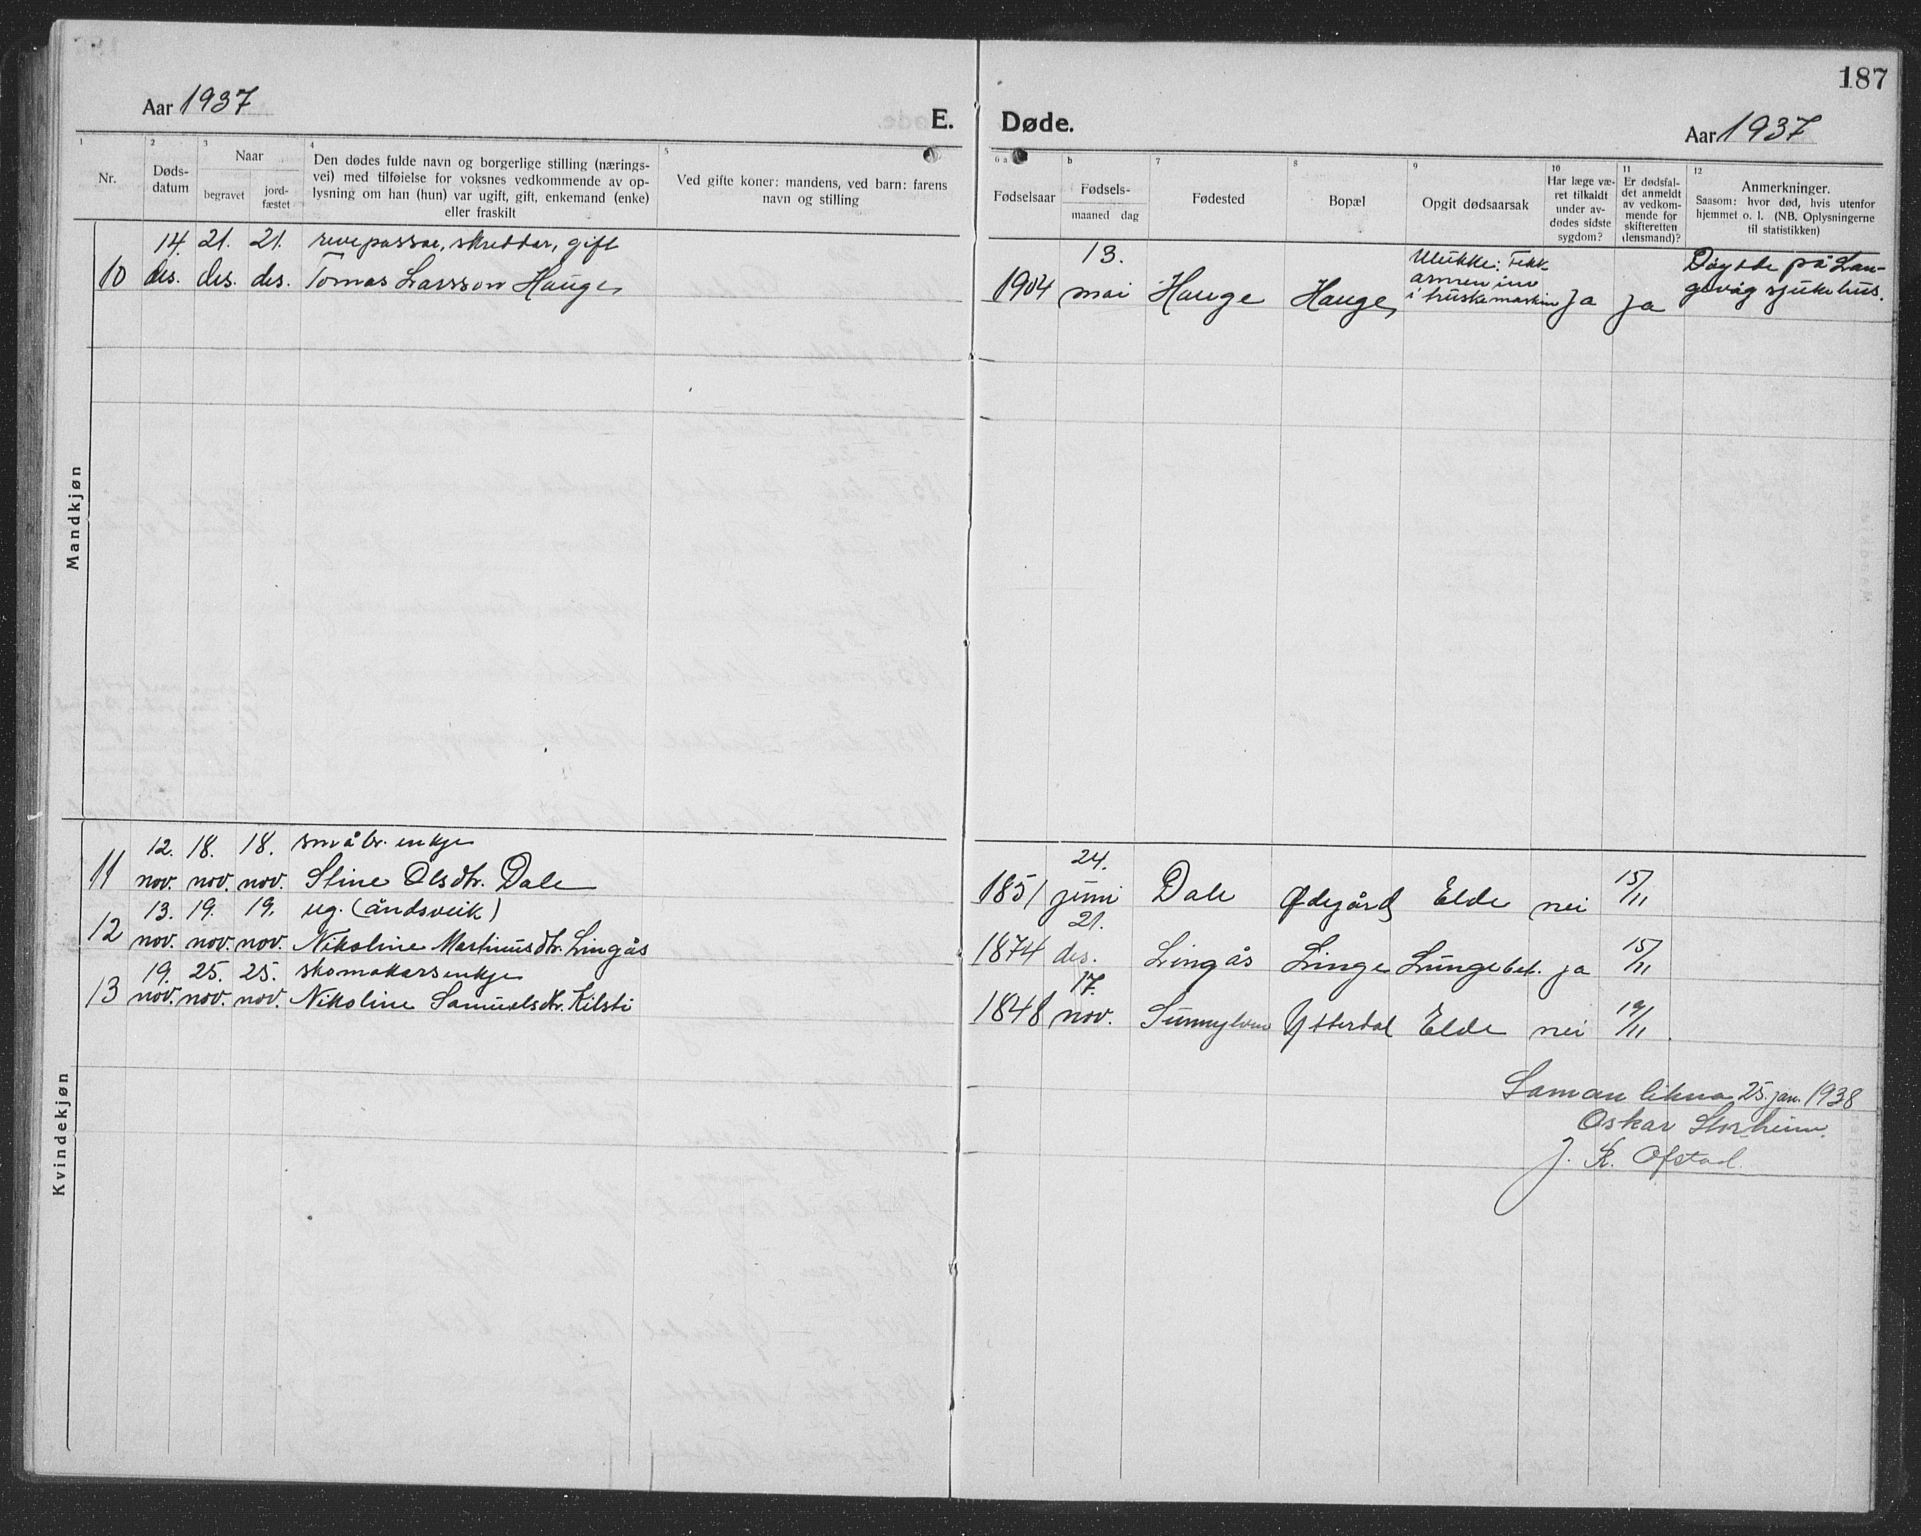 187
Aar 1937
E. Døde.
Aar 1937
1
Nr.
2
Døds-
datum
3
Naar
begravet
jord-
fæstet
4
Den dødes fulde navn og borgerlige stilling (nærings-
vei) med tilføielse for voksnes vedkommende av op-
lysning om han (hun) var ugift, gift, enkemand (enke)
eller fraskilt
5
Ved gifte koner: mandens, ved barn: farens
navn og stilling
6 a
Fødselsaar
b
Fødsels-
maaned dag
7
Fødested
8
Bopæl
9
Opgit dødsaarsak
10
Har læge væ-
ret tilkaldt
under av-
dødes sidste
sygdom?
11
Er dødsfal-
det anmeldt
av vedkom-
mende for
skifteretten
(lensmand)?
12
Anmerkninger.
Saasom: hvor død, hvis utenfor
hjemmet o. l. (NB. Oplysningerne
til statistikken)
Mandkjøn
14. 21. 21. revepassar, skreddar, gift
10 des. des. des. Tomas Larsson Hauge
13.
1904 mai Hauge Hauge
Ulukke: Fekk
armen inn
i truskemaskin
Ja Ja
Døydde på Lan-
gevåg sjukehus.
Kvindekjøn
12. 18. 18. småbr. enkje
11 nov. nov. nov. Stine Olsdtr. Dale
24.
1851 juni Dale Ødegård Elde nei 15/11
13. 19. 19. ug. (åndsveik)
12 nov. nov. nov. Nikoline Martinusdtr. Lingås
21.
1874 des. Lingås Linge Lungebet. ja 15/11
19. 25. 25. skomakarsenkje
13 nov. nov. nov. Nikoline Samuelsdtr. Kilsti
17.
1848 nov. Sunnylven Ytterdal Elde nei 19/11
Saman likna 25. jan. 1938
Oskar Storheim.
J. K. Ofstad.